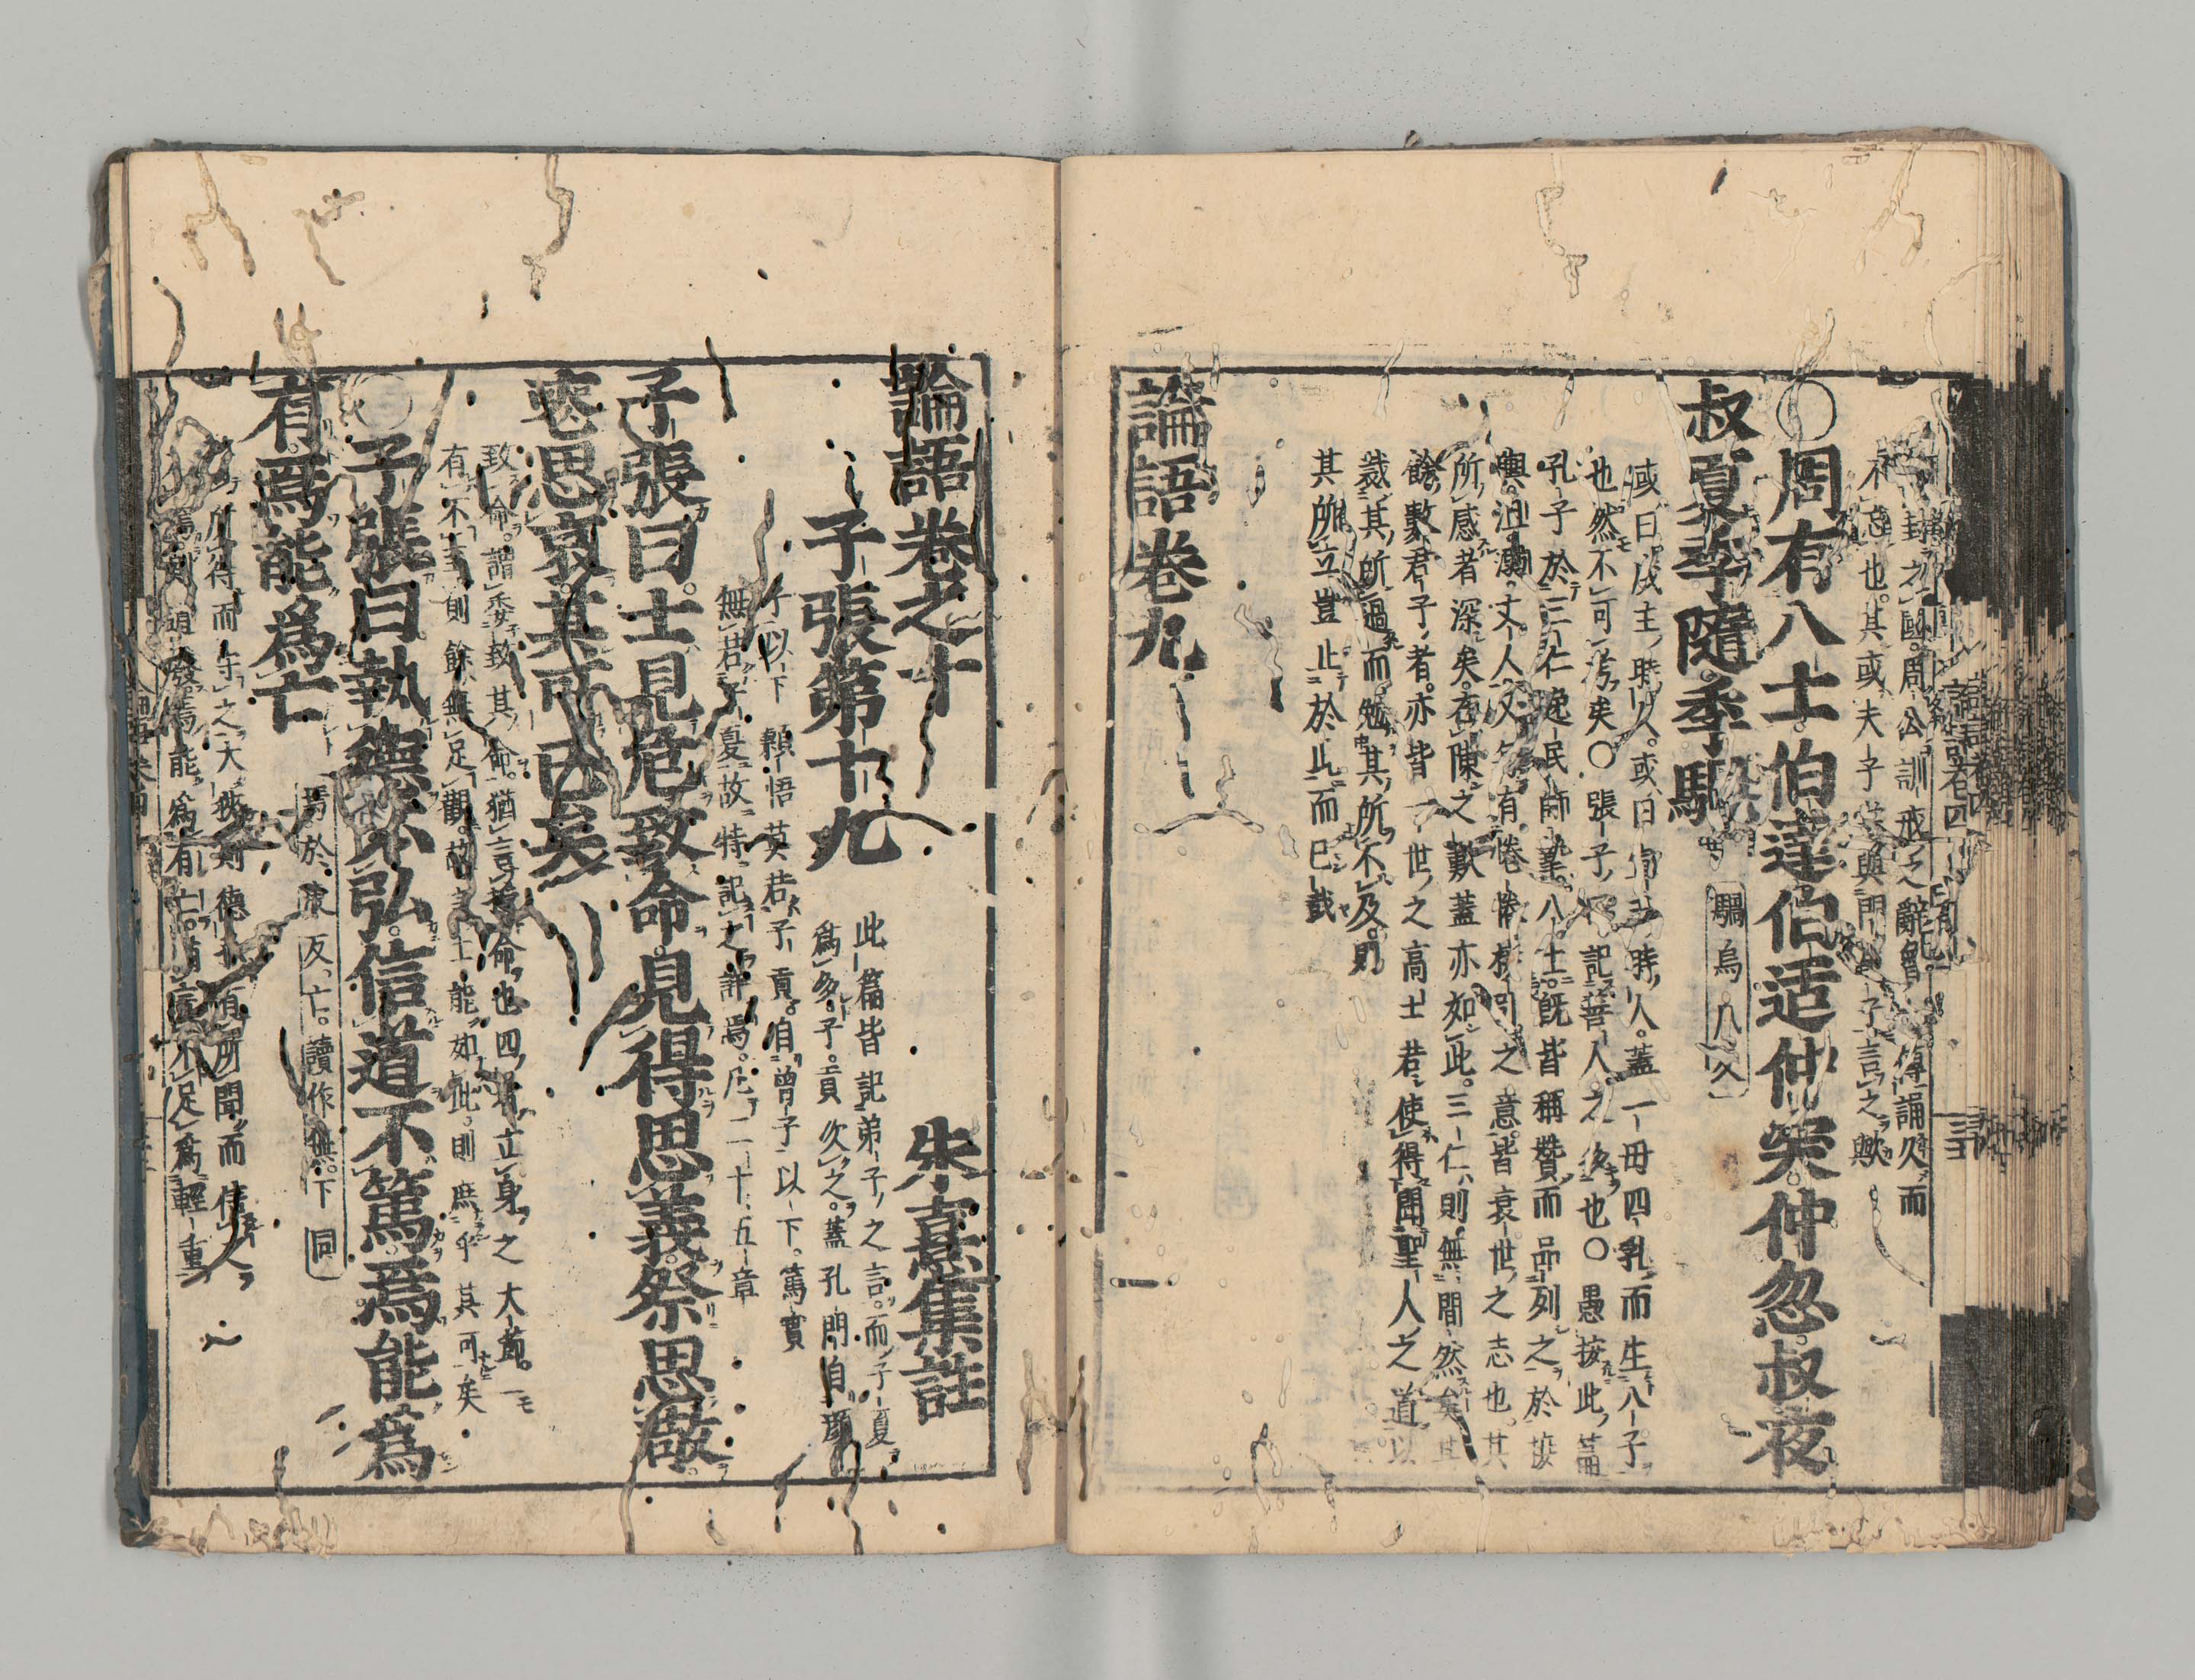 封之國。周公訓戒之辭。魯人傳誦久而
不忘也。其或夫子與門子言之歟
○周有八士。伯達伯适仲突仲忽叔夜
叔夏季隨季騧 騧烏瓜
或曰成主時人。或曰宣王時人。蓋一母四乳而生八子
也。然不可考矣○張子曰記善人之多也○愚按此篇
孔子於三仁逸民師摯八士。既皆稱贊而品列之於接
輿沮溺丈人又有惓惓接引之意。皆衰世之志也。其
所感者深矣。在陳之歎蓋亦如此。三仁則無間然矣其
餘數君子者。亦皆一世之高士若使得聞聖人之道以
裁其所過而勉其所不及。則
其所立豈止於此而已哉
論語卷九
論語卷之十 朱熹集註
子張第十九 此篇皆記弟子之言。而子夏
爲多。子貢次之。蓋孔門自顏
子以下穎悟莫若子貢。自曾子以下。篤實
無若子夏。故特記之詳焉。凡二十五章
子張曰。士見危致命。見得思義。祭思敬。
喪思哀。其可已矣
致命。謂委致其命。猶言授命也四者立身之大節。一
有不至則餘無足觀。故言士能如此。則庶乎其可矣
○子張曰。執德不弘。信道不篤。焉能爲
有。焉能爲亡 焉於虔反。亡。讀作無。下同
所得而守之大狹則德孤有所聞而信
焉則道廢焉能爲有亡。猶言不足爲輕重